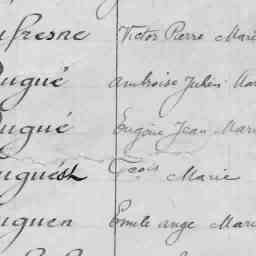 ufresne Victor Pierre Marie
ugué Ambroise Julien Mar
ugué Eugène Jean Mari
uguést Fçois Marie
uguen Emile ange Mari